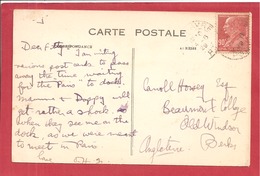 CARTE POSTALE
CORRESPONDANCE
Dear
various post cards to pass
away the time waiting
for the Paris to dock.
Mummie & Duppy will
get rather a shock
when they see me on the
dock, as we were next
to meet in Paris
Carroll Esq
Beaumont College
Old Windsor
Berks
Angleterre